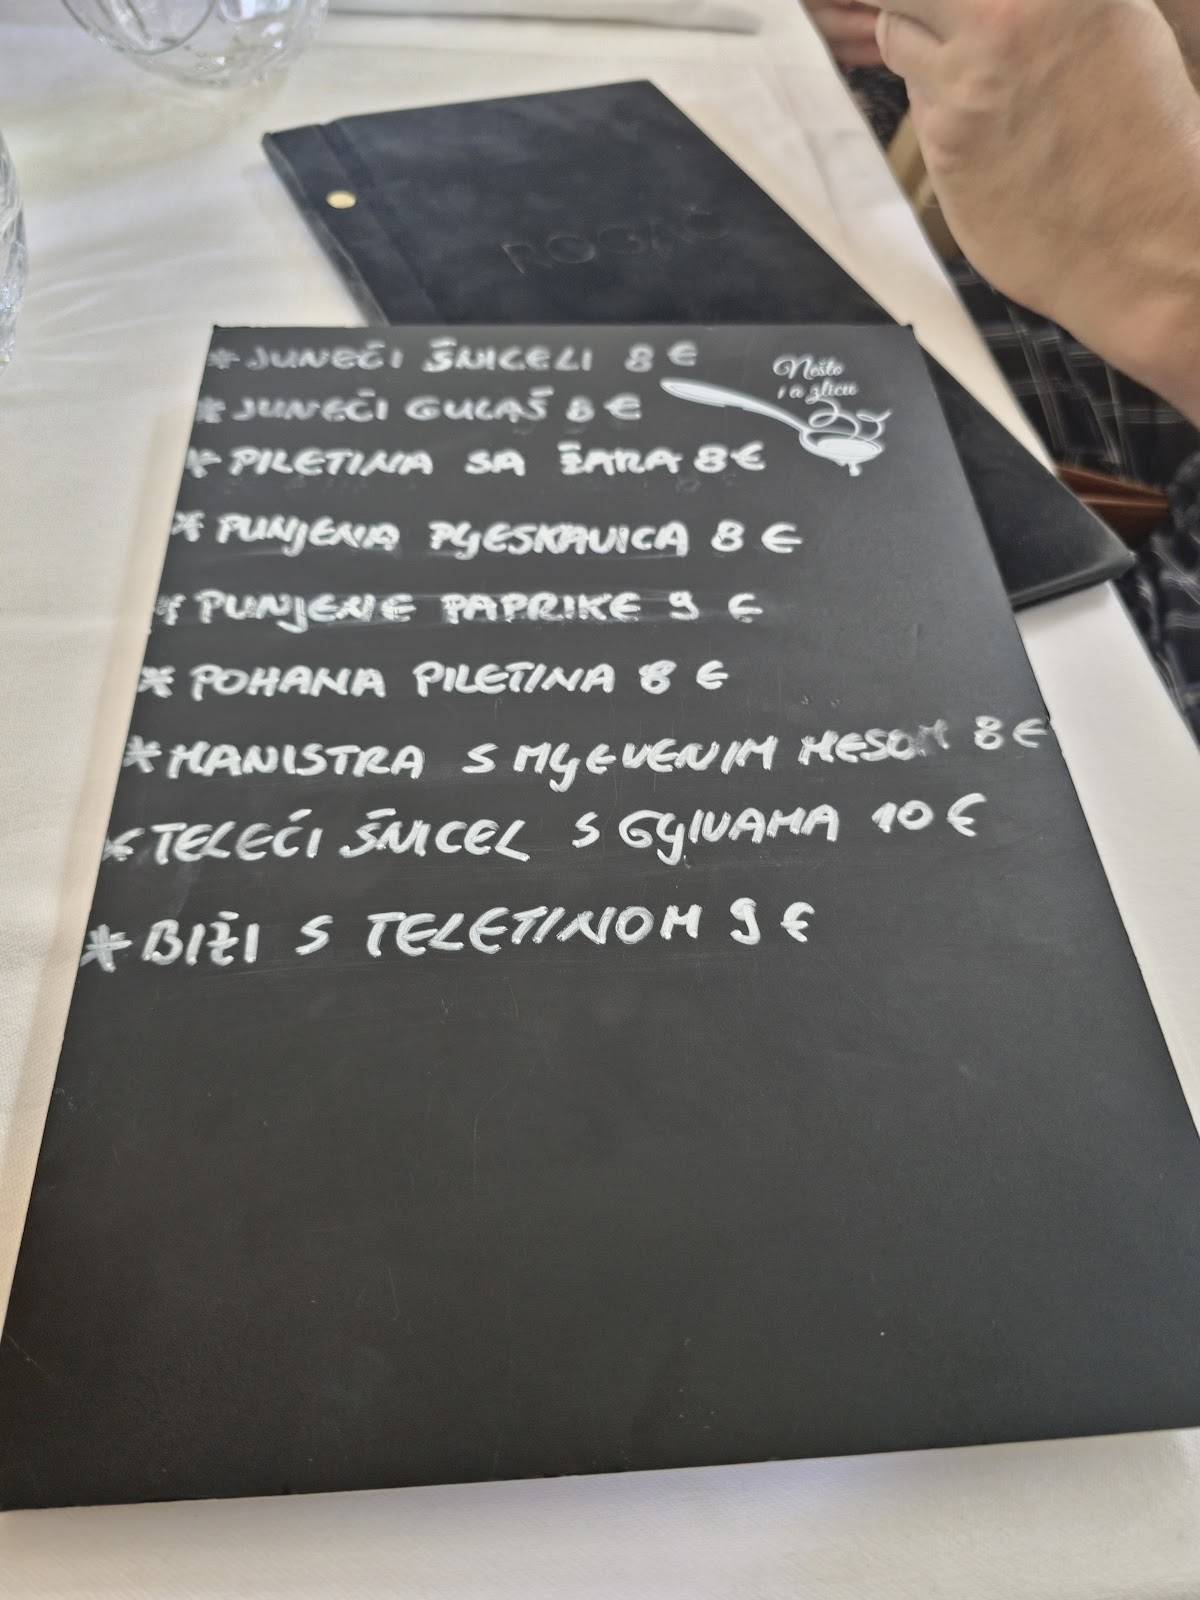 ROGAČ
* JUNEĆI ŠNICELI 8 €
Nešto
na žlicu
* JUNEĆI GULAŠ 8 €
* PILETINA SA ŽARA 8 €
* PUNJENA PLJESKAVICA 8 €
* PUNJENE PAPRIKE 9 €
* POHANA PILETINA 8 €
* MANISTRA S MLJEVENIM MESOM 8 €
* TELEĆI ŠNICEL S GLJIVAMA 10 €
* BIŽI S TELETINOM 9 €